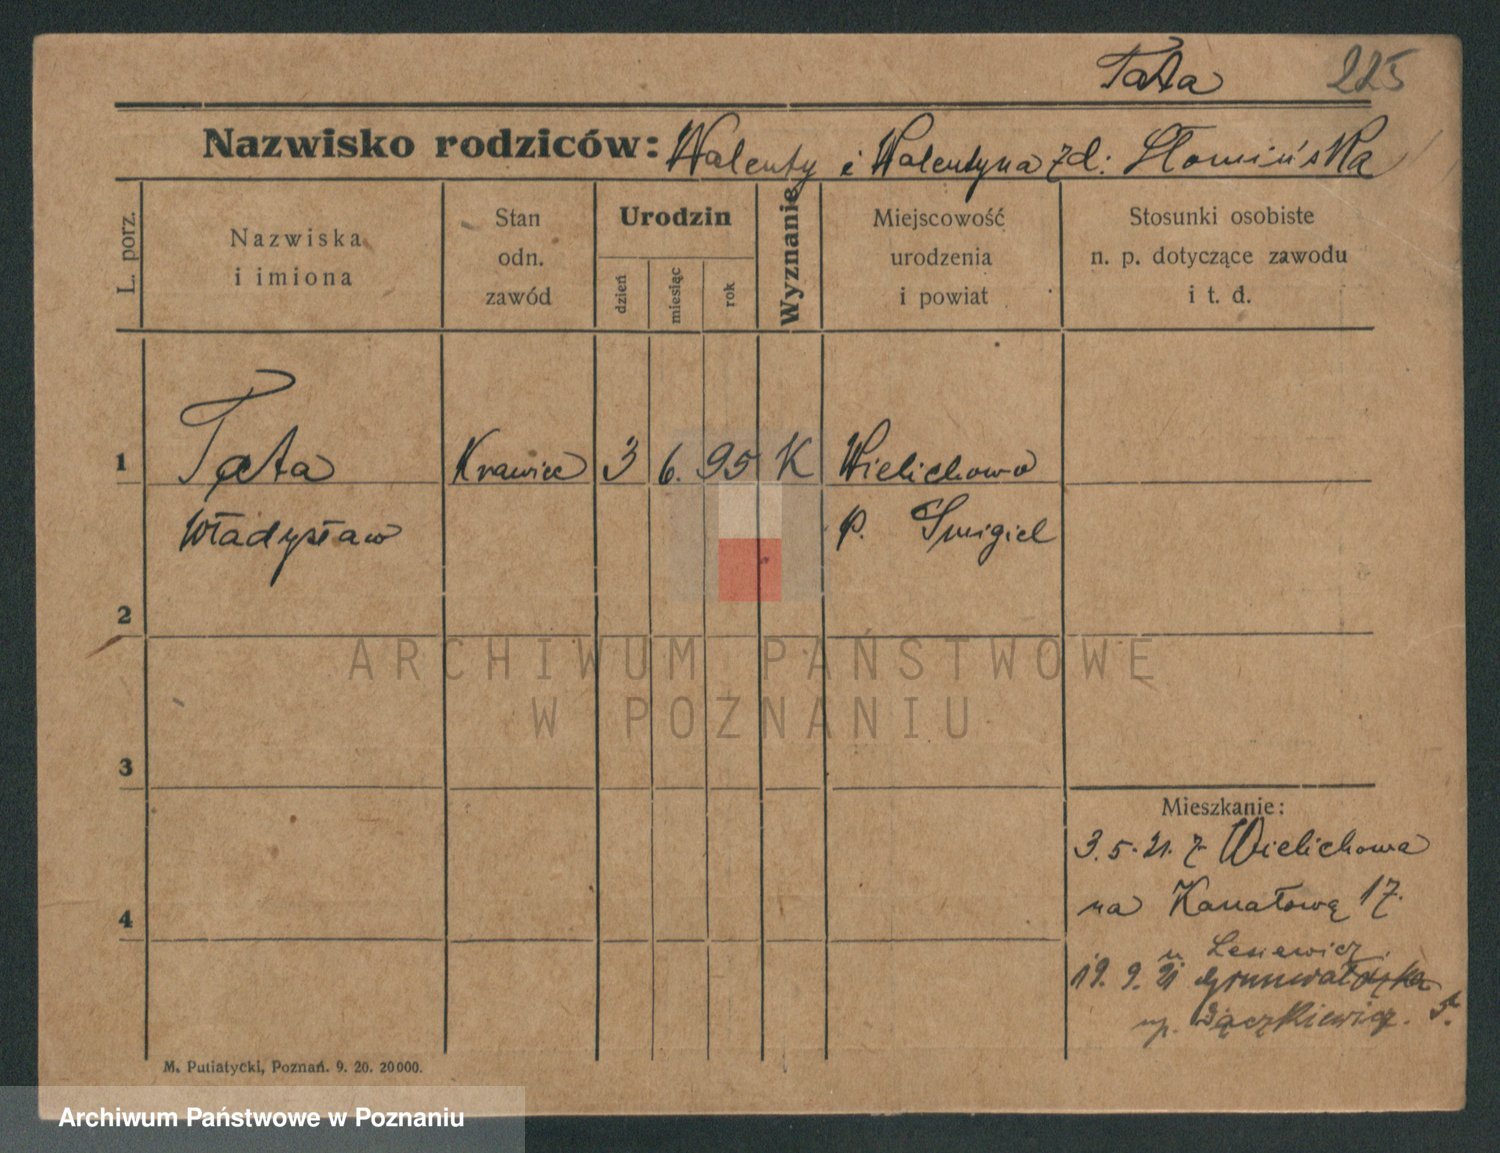 Tata 225
Nazwisko rodziców: Walenty i Walentyna zd: Słomińska
L. porz.
Nazwiska
i imiona
Stan
odn.
zawód
Urodzin
dzień
miesiąc
rok
Wyznanie
Miejscowość
urodzenia
i powiat
Stosunki osobiste
n. p. dotyczące zawodu
i t. d.
1 Tata Krawiec 3 6. 95 K Wielichowo
Władysław p. Smigiel
2
3
4
Mieszkanie:
3.5.21. z Wielichowa
na Kanałową 17.
u Lesiewicz.
19. 9. 21 Grunwaldzka
np. Bączkiewicz.
ARCHIWUM PAŃSTWOWE
W POZNANIU
M. Putiatycki, Poznań. 9. 20. 20000.
Archiwum Państwowe w Poznaniu